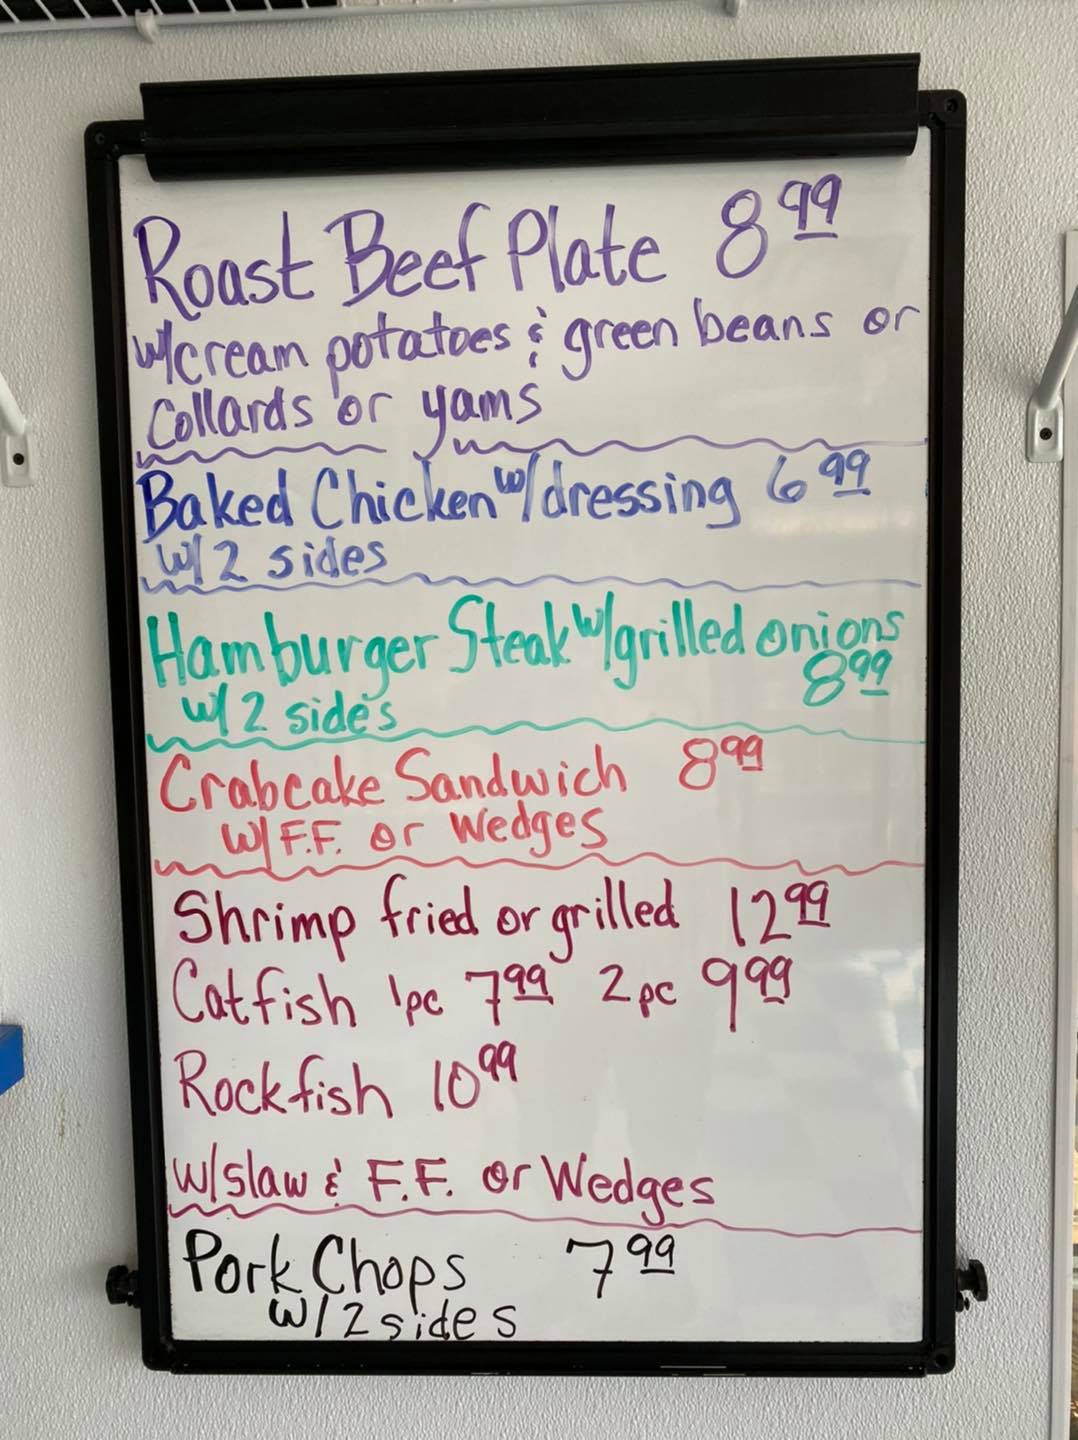 Roast Beef Plate 8 99
w/cream potatoes & green beans or
Collards or yams
Baked Chicken w/dressing 6 99
w/2 sides
Hamburger Steak w/grilled onions
8 99
w/2 sides
Crabcake Sandwich 8 99
w/F.F. or Wedges
Shrimp fried or grilled 12 99
Catfish 1pc 7 99 2pc 9 99
Rockfish 10 99
w/slaw & F.F. or Wedges
Pork Chops 7 99
w/2 sides